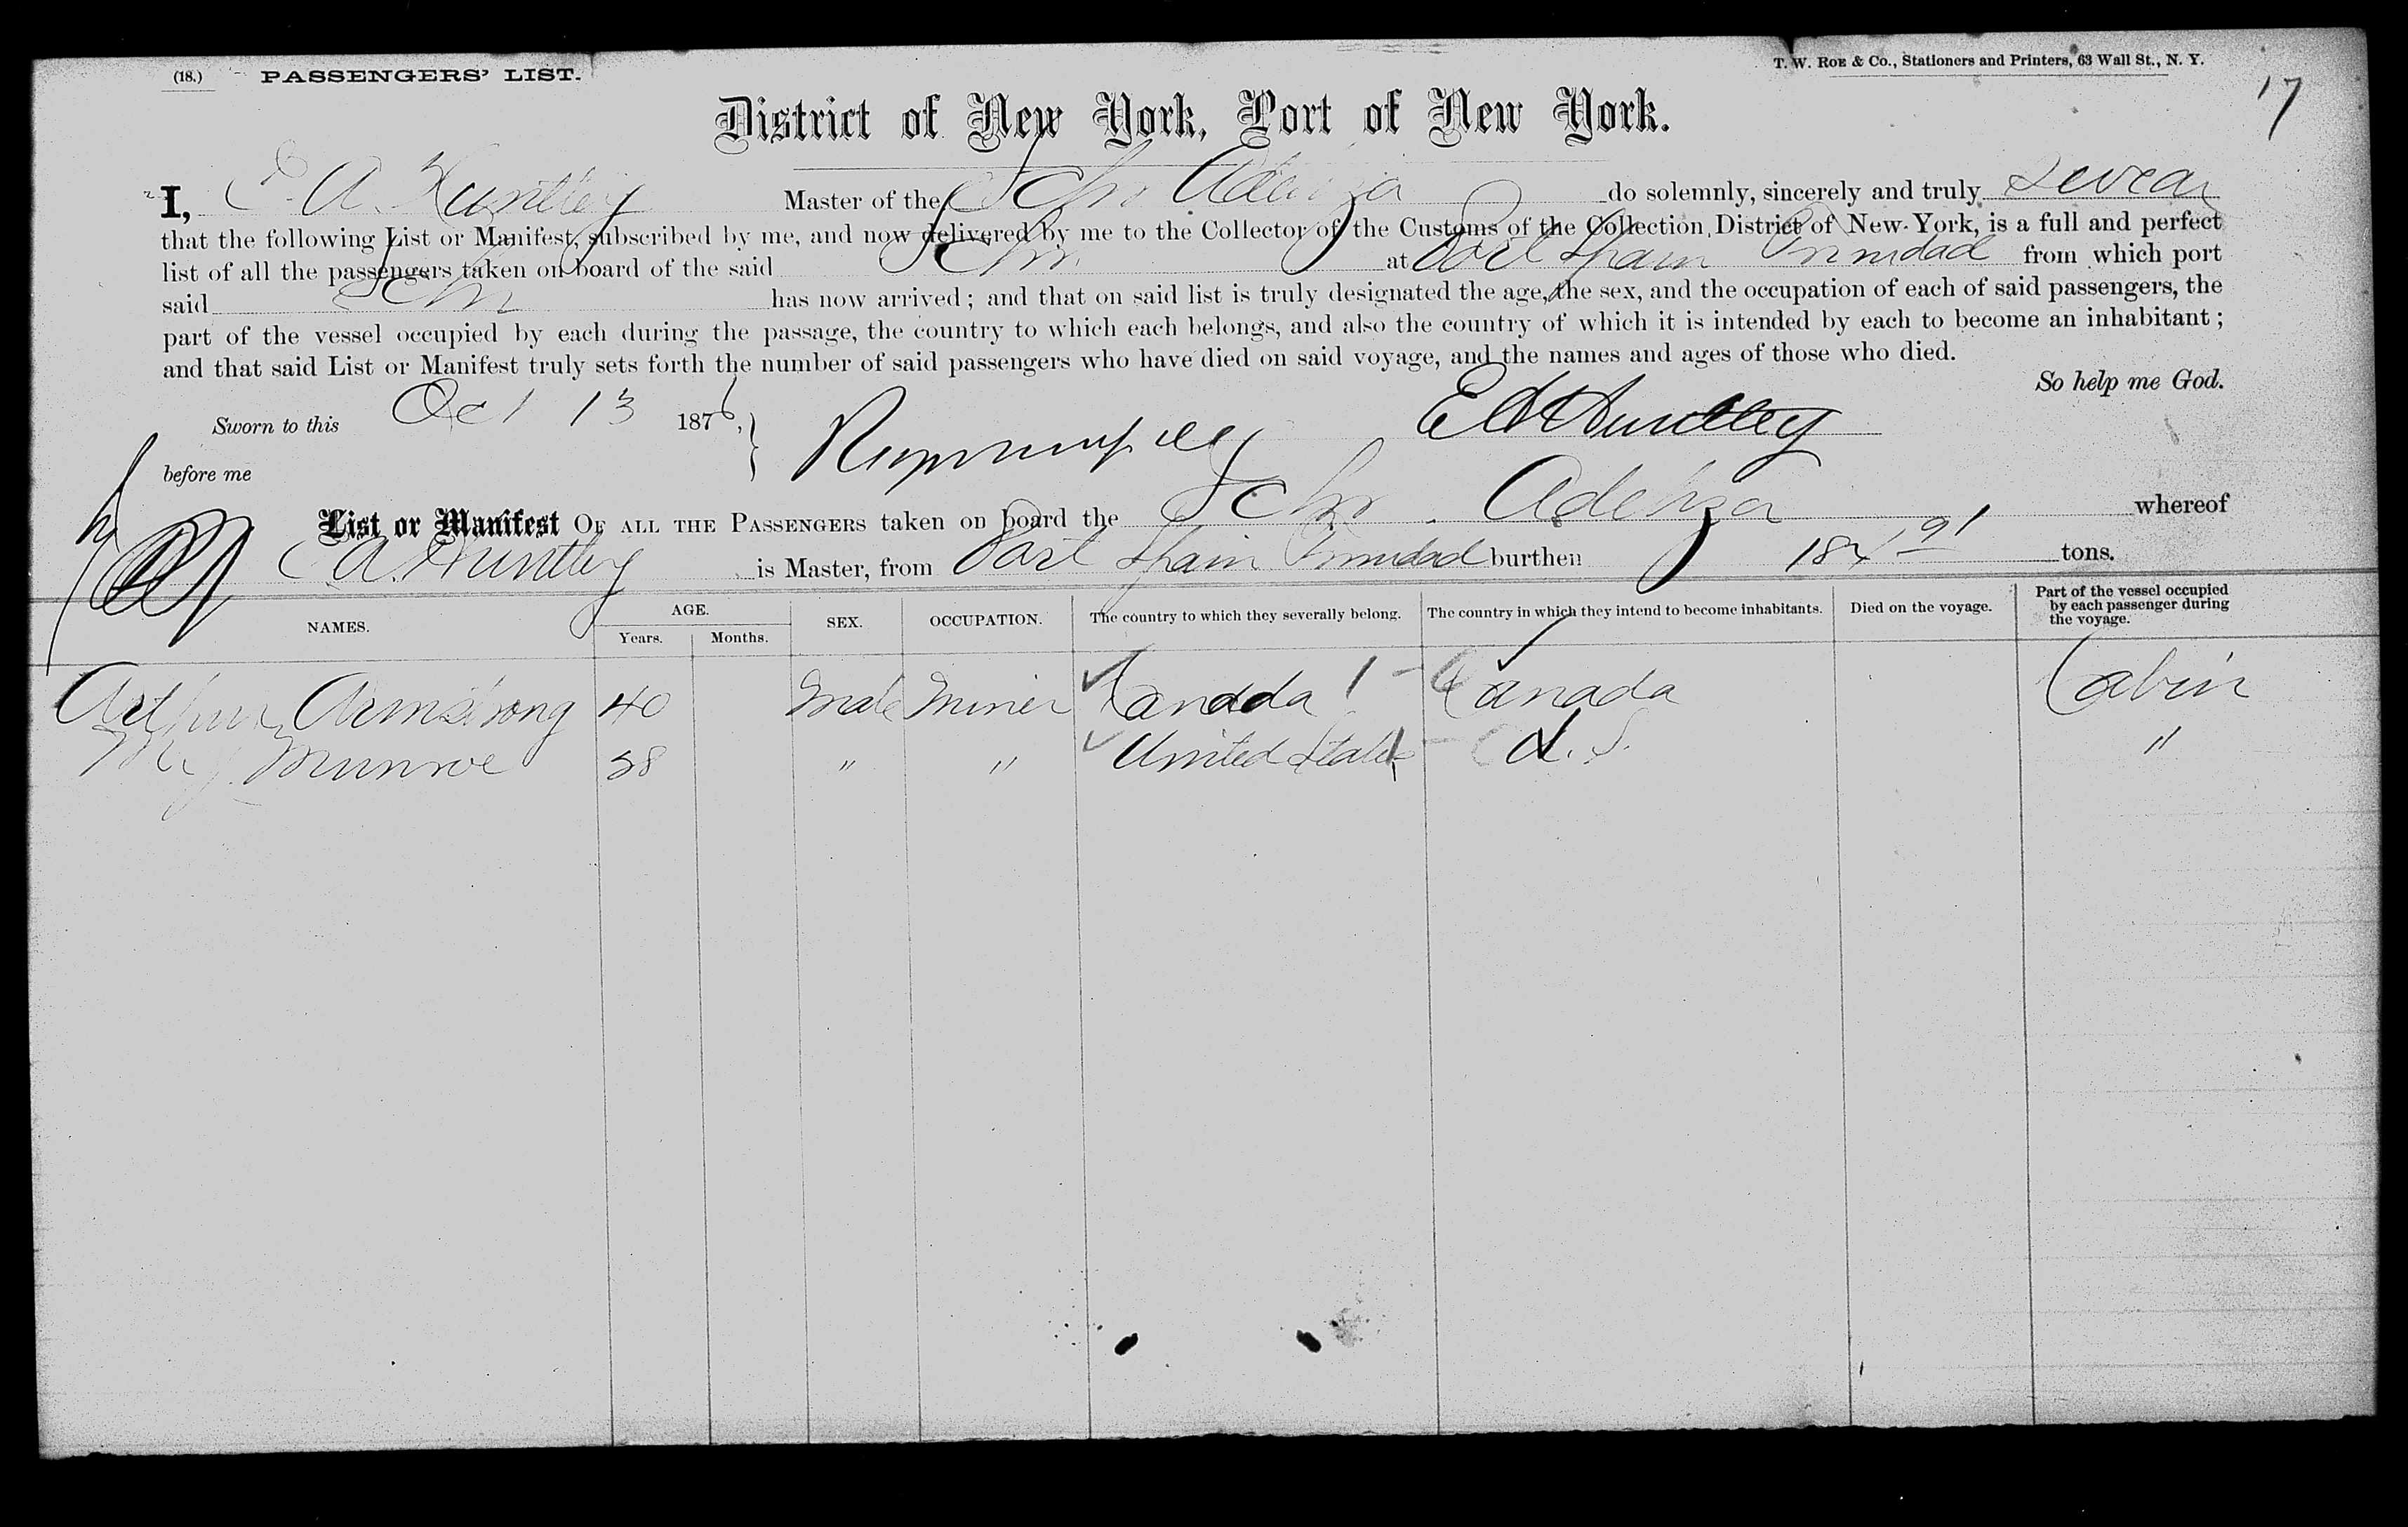 (18.) PASSENGERS' LIST. T. W. ROE & Co., Stationers and Printers, 63 Wall St., N. Y.
17
District of New York, Port of New York.
I, E. A. Huntley Master of the Schr Adeliza do solemnly, sincerely and truly swear
that the following List or Manifest, subscribed by me, and now delivered by me to the Collector of the Customs of the Collection District of New-York, is a full and perfect
list of all the passengers taken on board of the said Schr at Port Spain Trinidad from which port
said Schr has now arrived; and that on said list is truly designated the age, the sex, and the occupation of each of said passengers, the
part of the vessel occupied by each during the passage, the country to which each belongs, and also the country of which it is intended by each to become an inhabitant;
and that said List or Manifest truly sets forth the number of said passengers who have died on said voyage, and the names and ages of those who died.
So help me God.
Sworn to this Oct 13 1876, E A Huntley
before me
List or Manifest OF ALL THE PASSENGERS taken on board the Schr. Adeliza whereof
E A. Huntley is Master, from Port Spain Trinidad burthen 184 91 tons.
NAMES. AGE. Years. Months. SEX. OCCUPATION. The country to which they severally belong. The country in which they intend to become inhabitants. Died on the voyage. Part of the vessel occupied by each passenger during the voyage.
Arthur Armstrong 40 Male Miner Canada 1 - Canada Cabin
Munroe 38 " " United States 1 - U. S. "